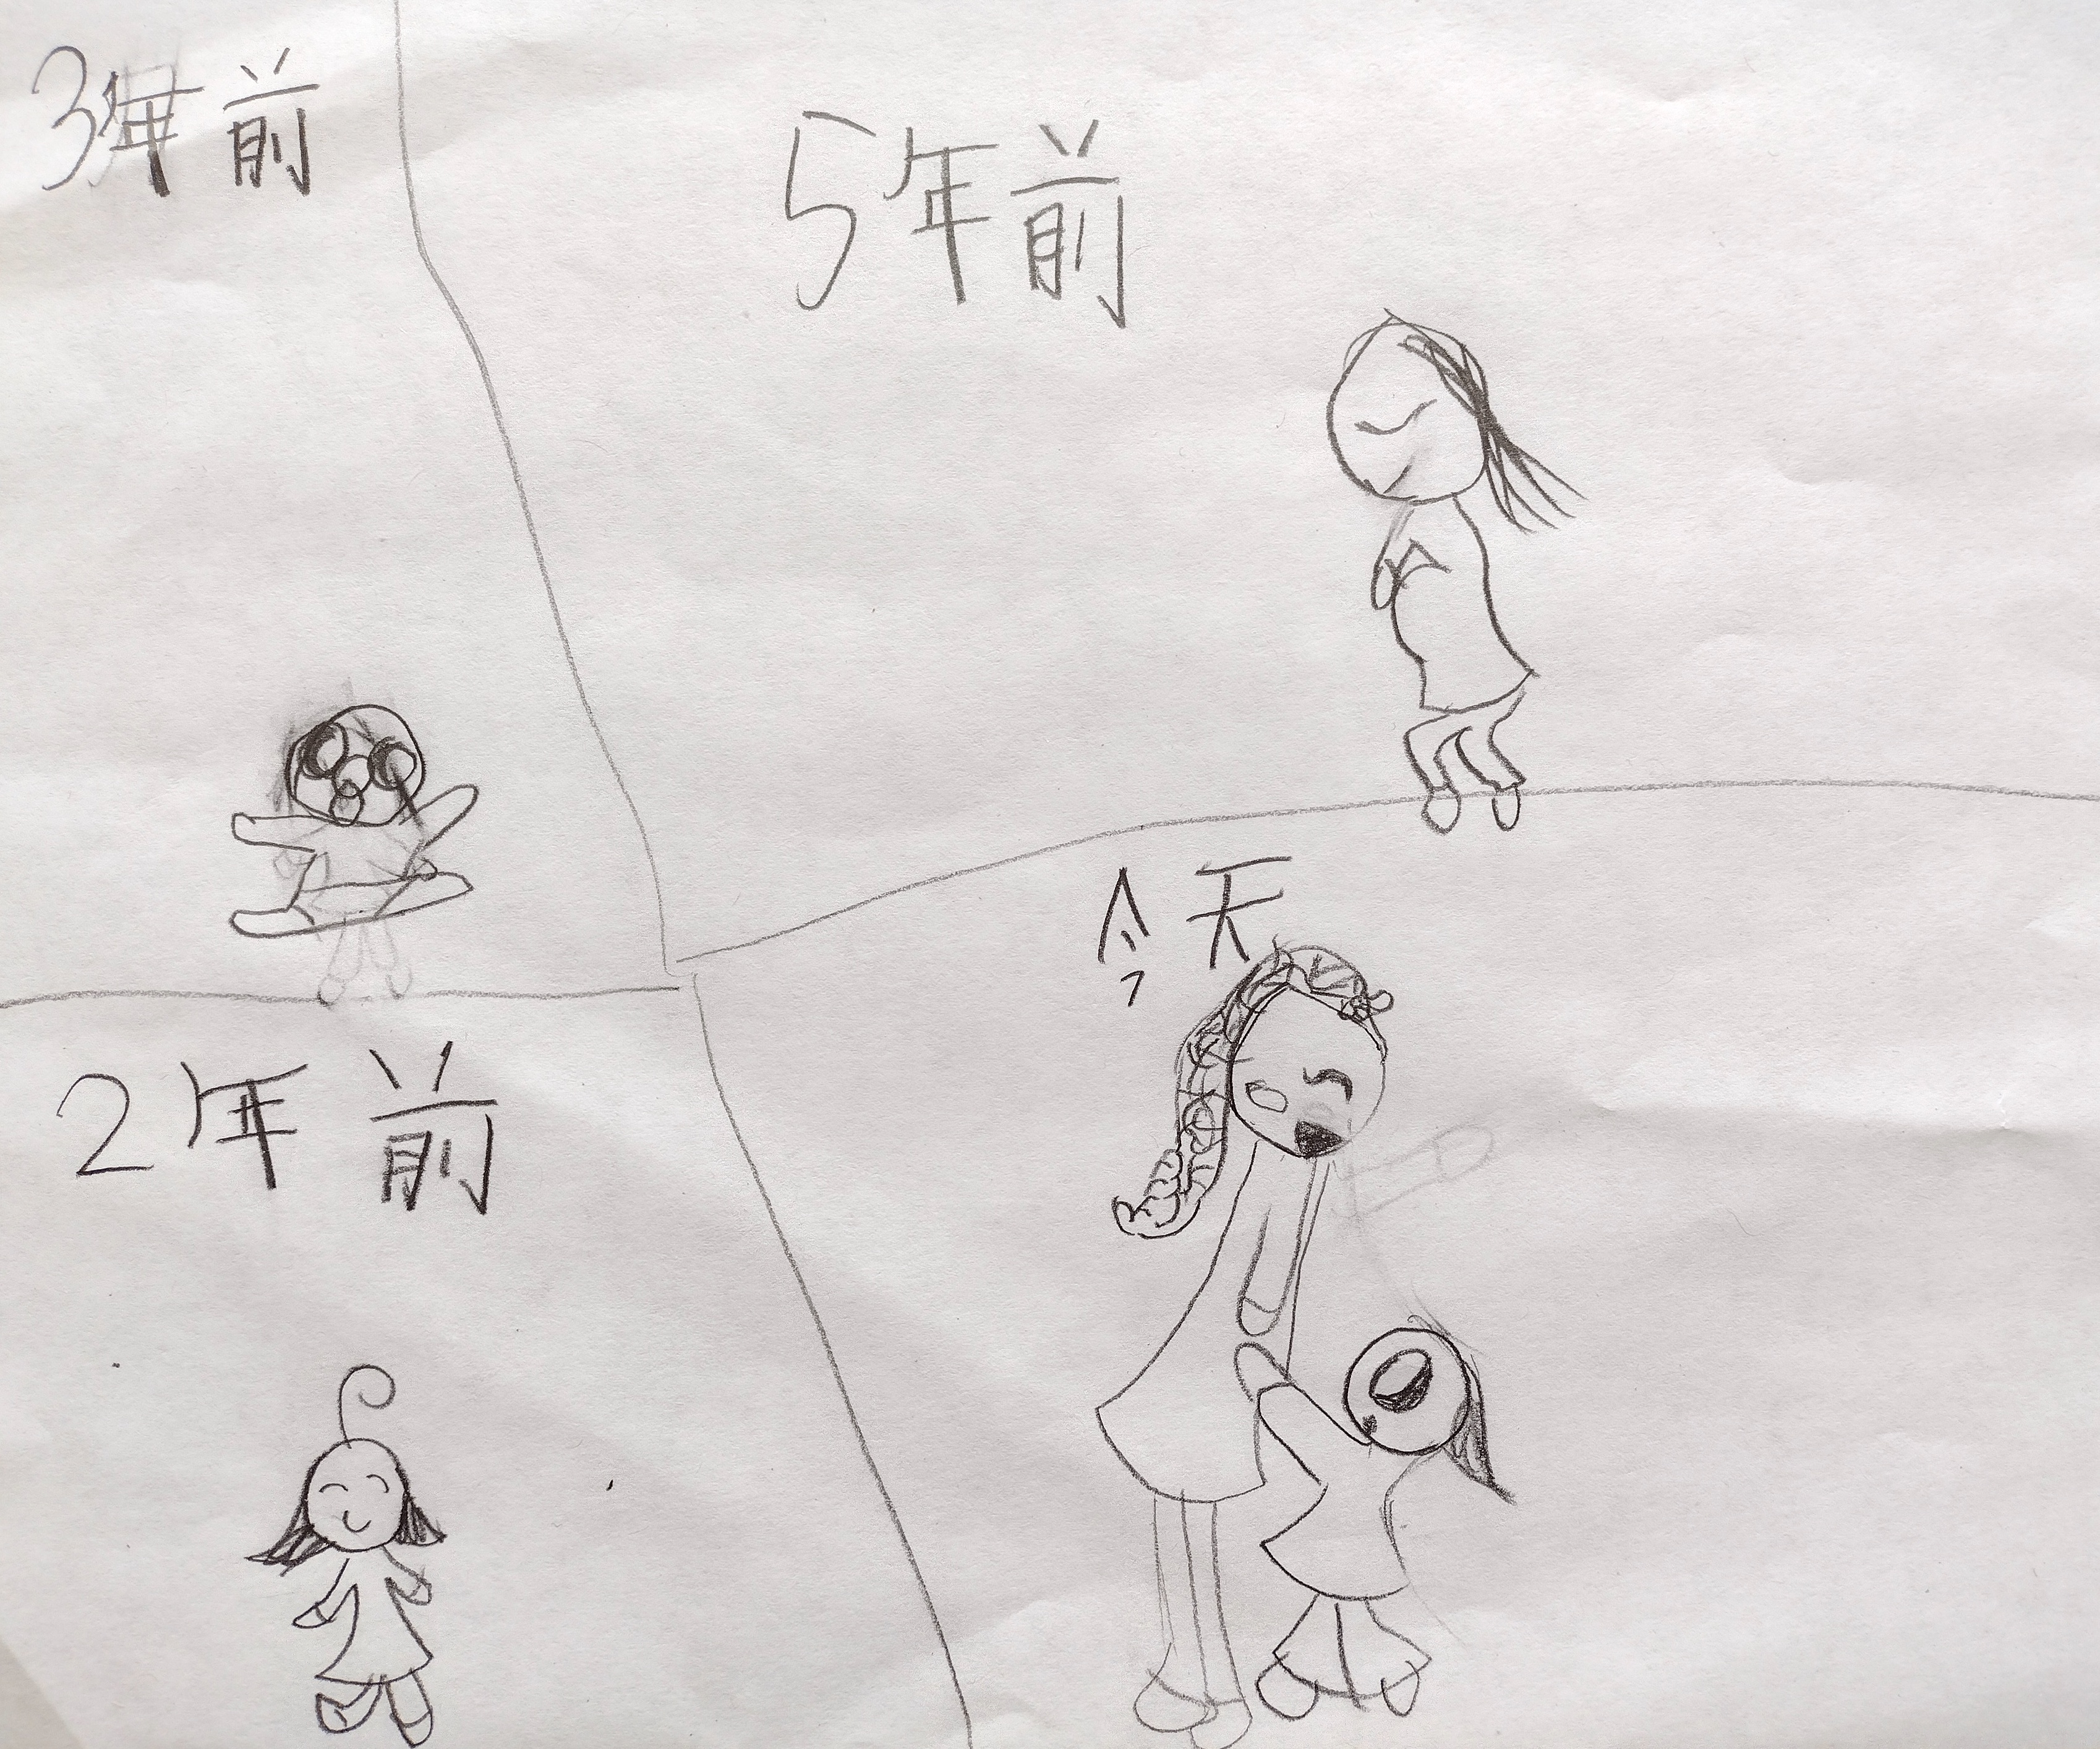 3年前
5年前
2年前
今天